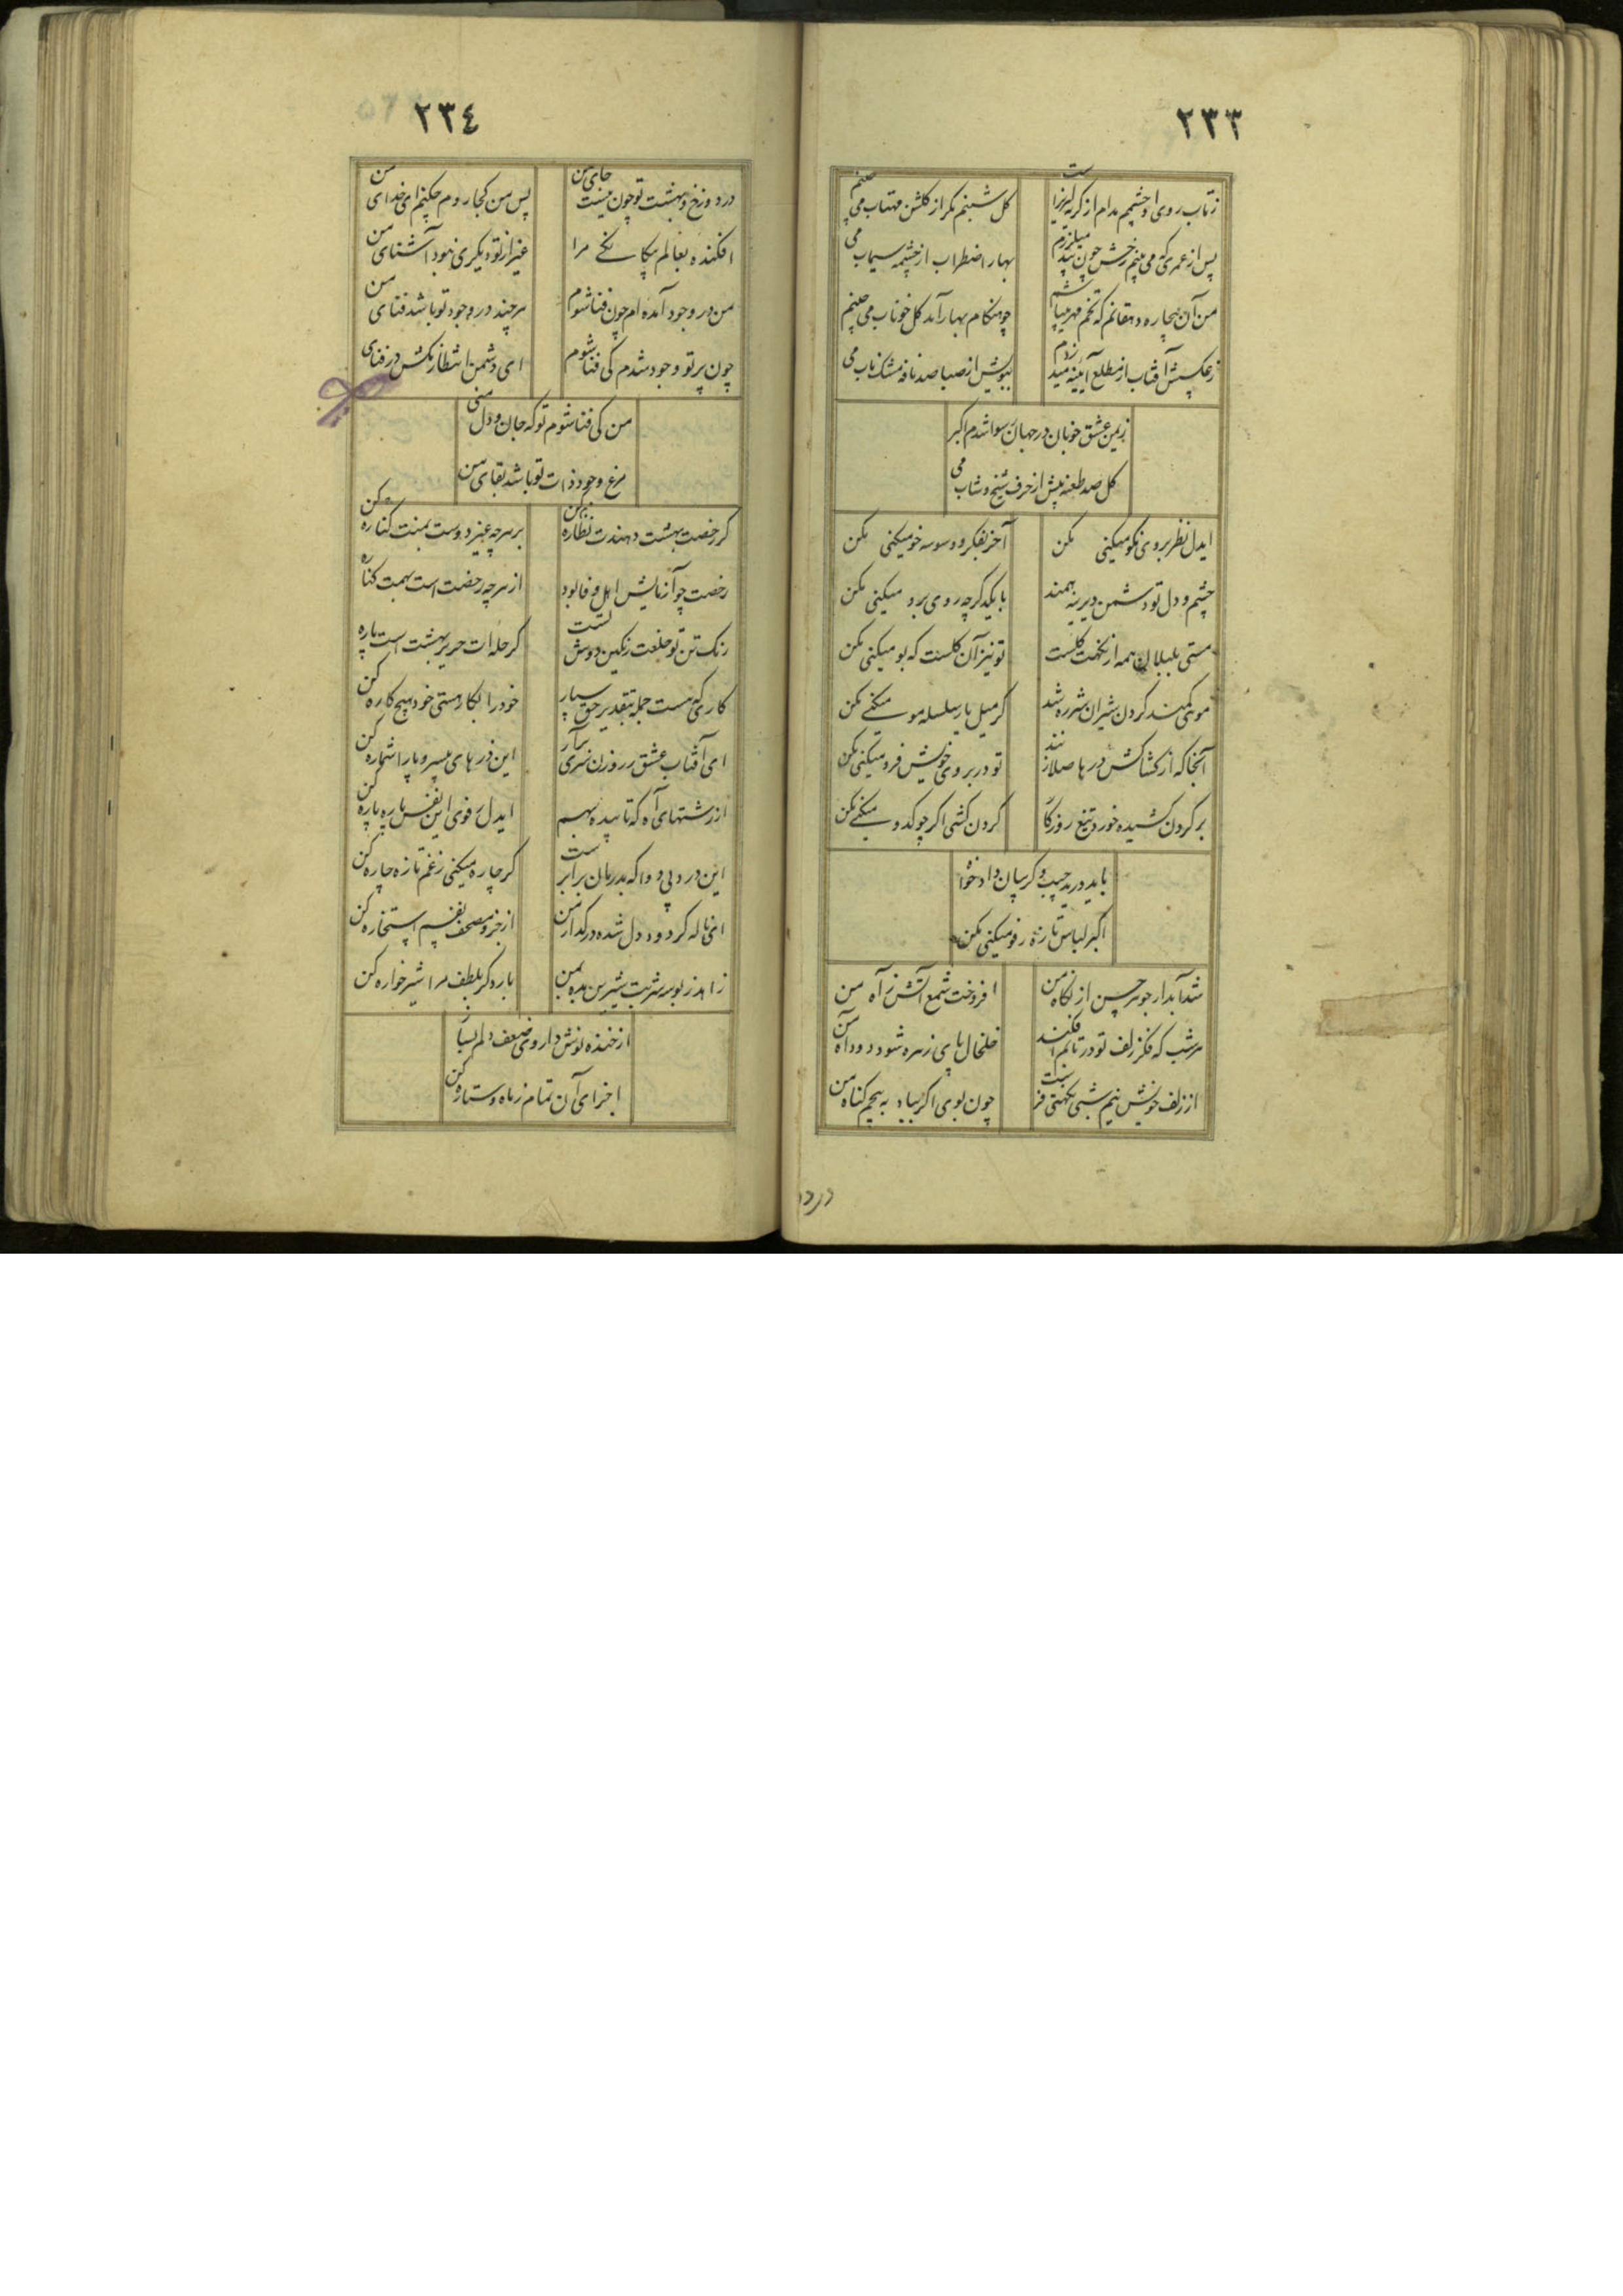 ٢٣٣
زتاب روی او چشمم مدام از گریه لبریز است
گل شبنم مگر از گلشن مهتاب می چینم
پس از عمری که می بینم رخش چون بید میلرزم
بهار اضطراب از چشمه سیماب می
من آن بیچاره دهقانم که تخم مهر میپاشم
چو هنگام بهار آمد گل خوناب می چینم
زعکسش آفتاب از مطلع آیینه میدزدم
ببویش از صبا صد نافه مشک ناب می
زیمن عشق خوبان در جهان رسوا شدم اکبر
گل صد طعنه پیش از حرف شیخ و شاب می
ایدل نظر بروی نکو میکنی مکن
آخر بفکر و وسوسه خو میکنی مکن
چشم و دل تو دشمن دیرینه همند
با یکدگر چه روی برو میکنی مکن
مستی بلبلان همه از نکهت گلست
تو نیز آن گلست که بو میکنی مکن
موئی کمند گردن شیران شرزه شد
گر میل یار سلسله مو میکنی مکن
آنجا که از کشاکش درها صلا زنند
تو در بروی خویش فرو میکنی مکن
بر گردن کشیده خورد تیغ روزگار
گردن کشی اگر چو کدو میکنی مکن
باید درید جیب و گریبان دادخواه
اکبر لباس تازه رفو میکنی مکن
شد آبدار جوهر حسن از نگاه من
افروخت شمع آتش ز آه من
هرشب که فکر زلف تو در تابم افکند
خلخال پای زهره شود دود آه من
از زلف خویش نیم شبی نکهتی فرست
چون بوی اگر بباد به پیچم گناه من
در دو
٢٣٤
در دوزخ و بهشت تو چون نیست جای من
پس من کجا روم چکنم ای خدای من
افکنده بعالم بیگانگی مرا
غیر از تو دیگری نبود آشنای من
من در وجود آمده ام چون فنا شوم
هرچند در وجود تو باشد فنای من
چون پرتو وجود شدم کی فنا شوم
ای دشمن انتظار مکش در فنای
من کی فنا شوم تو که جان و دل منی
مرغ وجود ذات تو باشد بقای من
گر رخصت بهشت دهندت نظاره کن
بر هرچه غیر دوست بمنت کناره کن
رخصت چو آزمایش اهل وفا بود
از هرچه رخصت است بهمت کناره
رنگ تن تو خلعت رنگین دوش تست
گر حله ات حریر بهشت است پاره
کاری که هست جمله بتقدیر حق سپار
خود را بکار هستی خود هیچ کاره کن
ای آفتاب عشق ز روزن سری برآر
این ذرهای بیسر و پا را شماره کن
از رشتهای آه که تابیده بهم
ایدل رفوی این نفس پاره پاره کن
این درد بی دوا که بدرمان برابر است
گر چاره میکنی زغم تازه چاره کن
ای ناله گرد و دود دل شده در گداز من
از جزو مصحف نفسم استخاره کن
زاهد ز بوسه شربت شیرین بده بمن
بار دگر بلطف مرا شیر خواره کن
از خنده نوش داروی ضعف دلم بساز
اجزای آن تمام ز ماه و ستاره کن